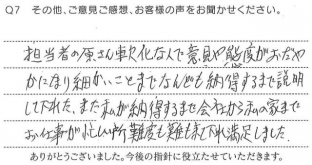 Q7 その他、ご意見ご感想、お客様の声をお聞かせください。
担当者の原さん軟化なんで意見や態度がおだや
かになり細かいことまでなんども納得するまで説明
して下れた、また私が納得するまで会社から私の家まで
お仕事が忙しい所難度も難も来てくれ満足しました。
ありがとうございました。今後の指針に役立たせていただきます。